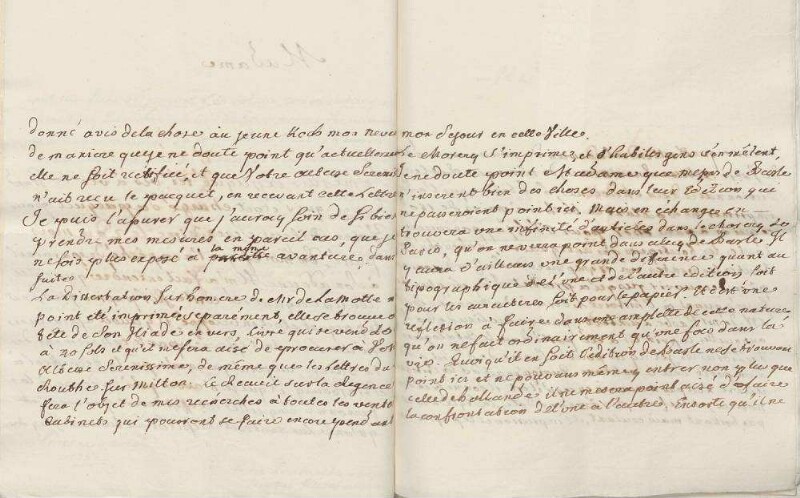 donné avis de la chose au jeune Kock mon neveu
de maniere que je ne doute point qu'actuellement
elle ne soit rectifiée, et que Votre Altesse Serenis:
n'ait reçu le pacquet, en recevant cette Lettre
Je puis l'assurer que j'auray soin de si bien
prendre mes mesures en pareil cas, que je
ne sois plus exposé à la même avanture, dans la
suite.
La Dissertation sur homere de Mr de la Motte n'a
point été imprimée séparément, elle se trouve à la
tête de son Iliade en vers, livre qui se vend
à 20 sols et qu'il ne sera aisé de procurer à Votre
Altesse Serenissime, de même que les Lettres du
sur Milton. Le Recueil sur la Regence
fera l'objet de mes recherches à toutes les ventes
Cabinets qui pourront se faire encore pendant
mon sejour en cette Ville.
Le Morery s'imprime, et d'habiles gens s'en mêlent,
Je ne doute point Madame que Mrs de Basle
n'inserent bien des choses dans leur Edition qui
ne passeroient point ici. Mais en échange on
trouvera une infinité d'articles dans le Morery de
Paris, qu'on ne verra point dans celuy de Basle. Il
y aura d'ailleurs une grande difference quant au
tipographique de l'une et de l'autre edition soit
pour les caracteres soit pour le papier. Et c'est une
reflexion à faire dans une amplette de cette nature
qu'on ne fait ordinairement qu'une fois dans la
vie. Quoiqu'il en soit l'edition de Basle ne se trouvant
point ici et ne pouvant même y entrer non plus que
celle de hollande il ne m'est point aisé de faire
la confrontation de l'une à l'autre, Ensorte qu'il ne